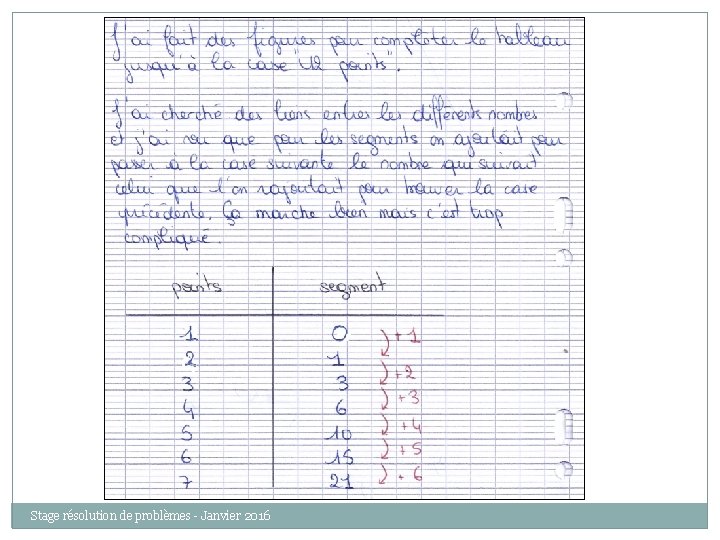 J'ai fait des figures pour completer le tableau
jusqu'à la case "12 points".
J'ai cherché des liens entre les différents nombres
et j'ai vu que pour les segments on ajoutait pour
passer à la case suivante le nombre qui suivait
celui que l'on rajoutait pour trouver la case
précédente. Ça marche bien mais c'est trop
compliqué.
points segment
1 0 +1
2 1 +2
3 3 +3
4 6 +4
5 10 +5
6 15 +6
7 21
Stage résolution de problèmes - Janvier 2016